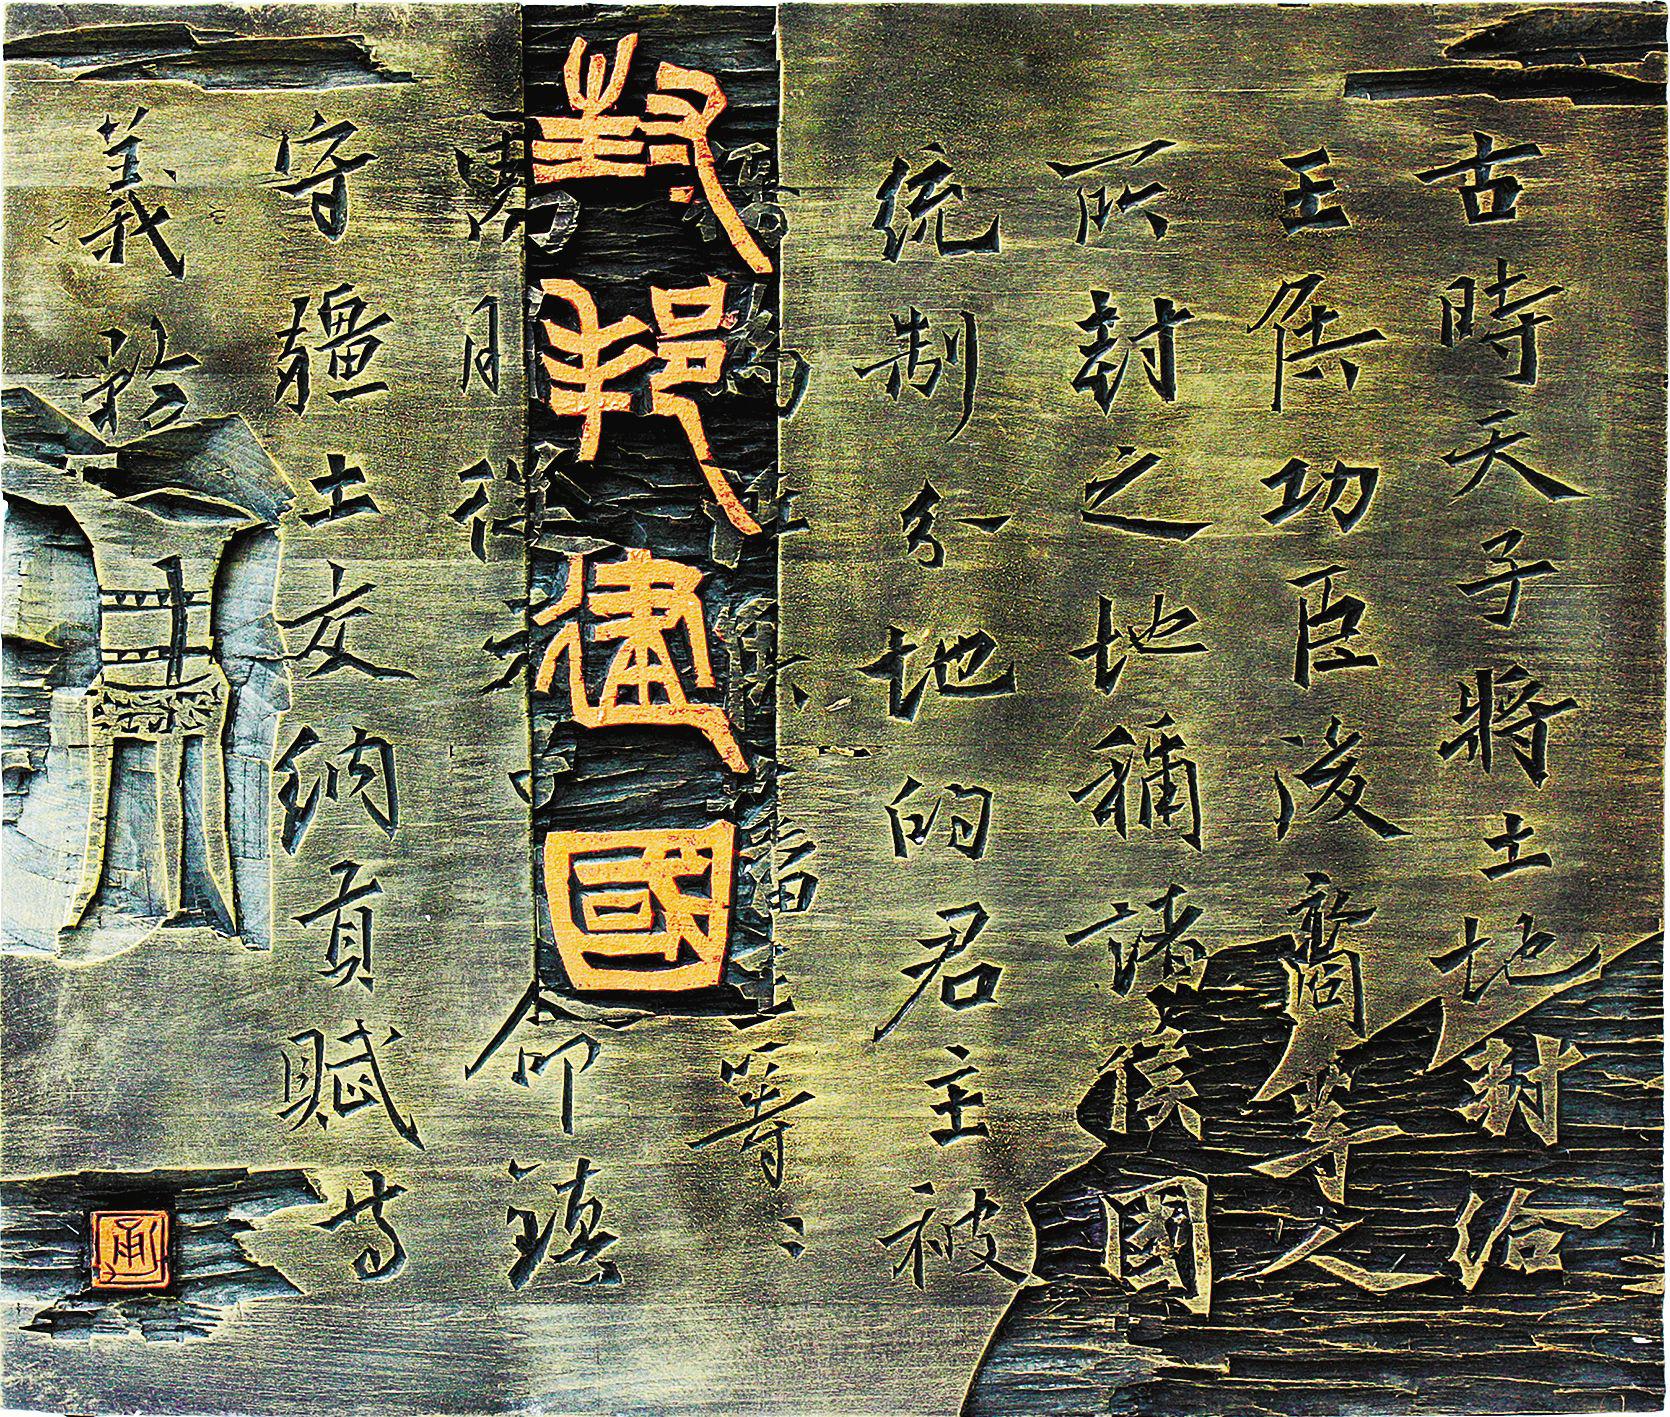 古時天子將土地封給
王侯功臣後裔等人
所封之地稱諸侯國
統制分地的君主被
為等、
封邦建國
需服從命鎮
守疆土交納貢賦等
義務